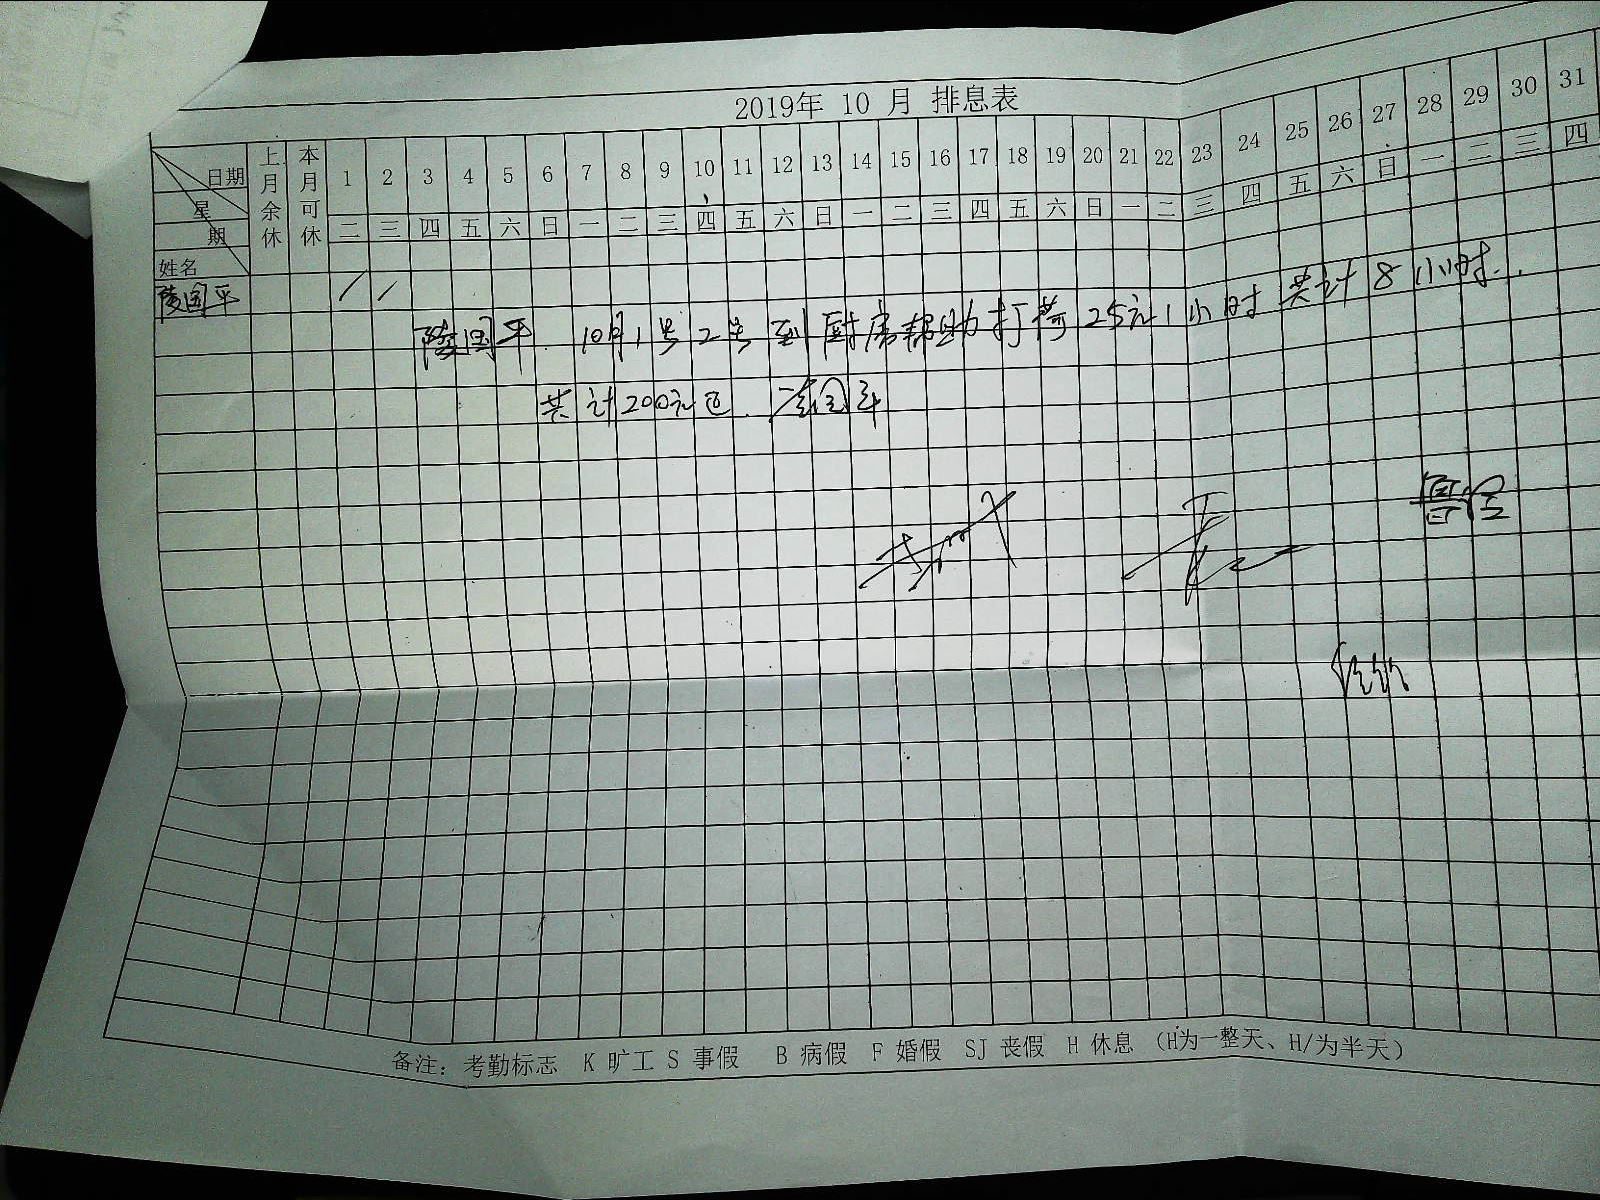 2019年 10 月 排息表
日期 上月余休 本月可休 1 2 3 4 5 6 7 8 9 10 11 12 13 14 15 16 17 18 19 20 21 22 23 24 25 26 27 28 29 30 31
星期 二 三 四 五 六 日 一 二 三 四 五 六 日 一 二 三 四 五 六 日 一 二 三 四 五 六 日 一 二 三 四
姓名
陵国平 / /
陵国平 10月1号2号到厨房帮助打荷25元1小时 共计8小时
共计200元
备注：考勤标志 K 旷工 S 事假 B 病假 F 婚假 SJ 丧假 H 休息 （H为一整天、H/为半天）